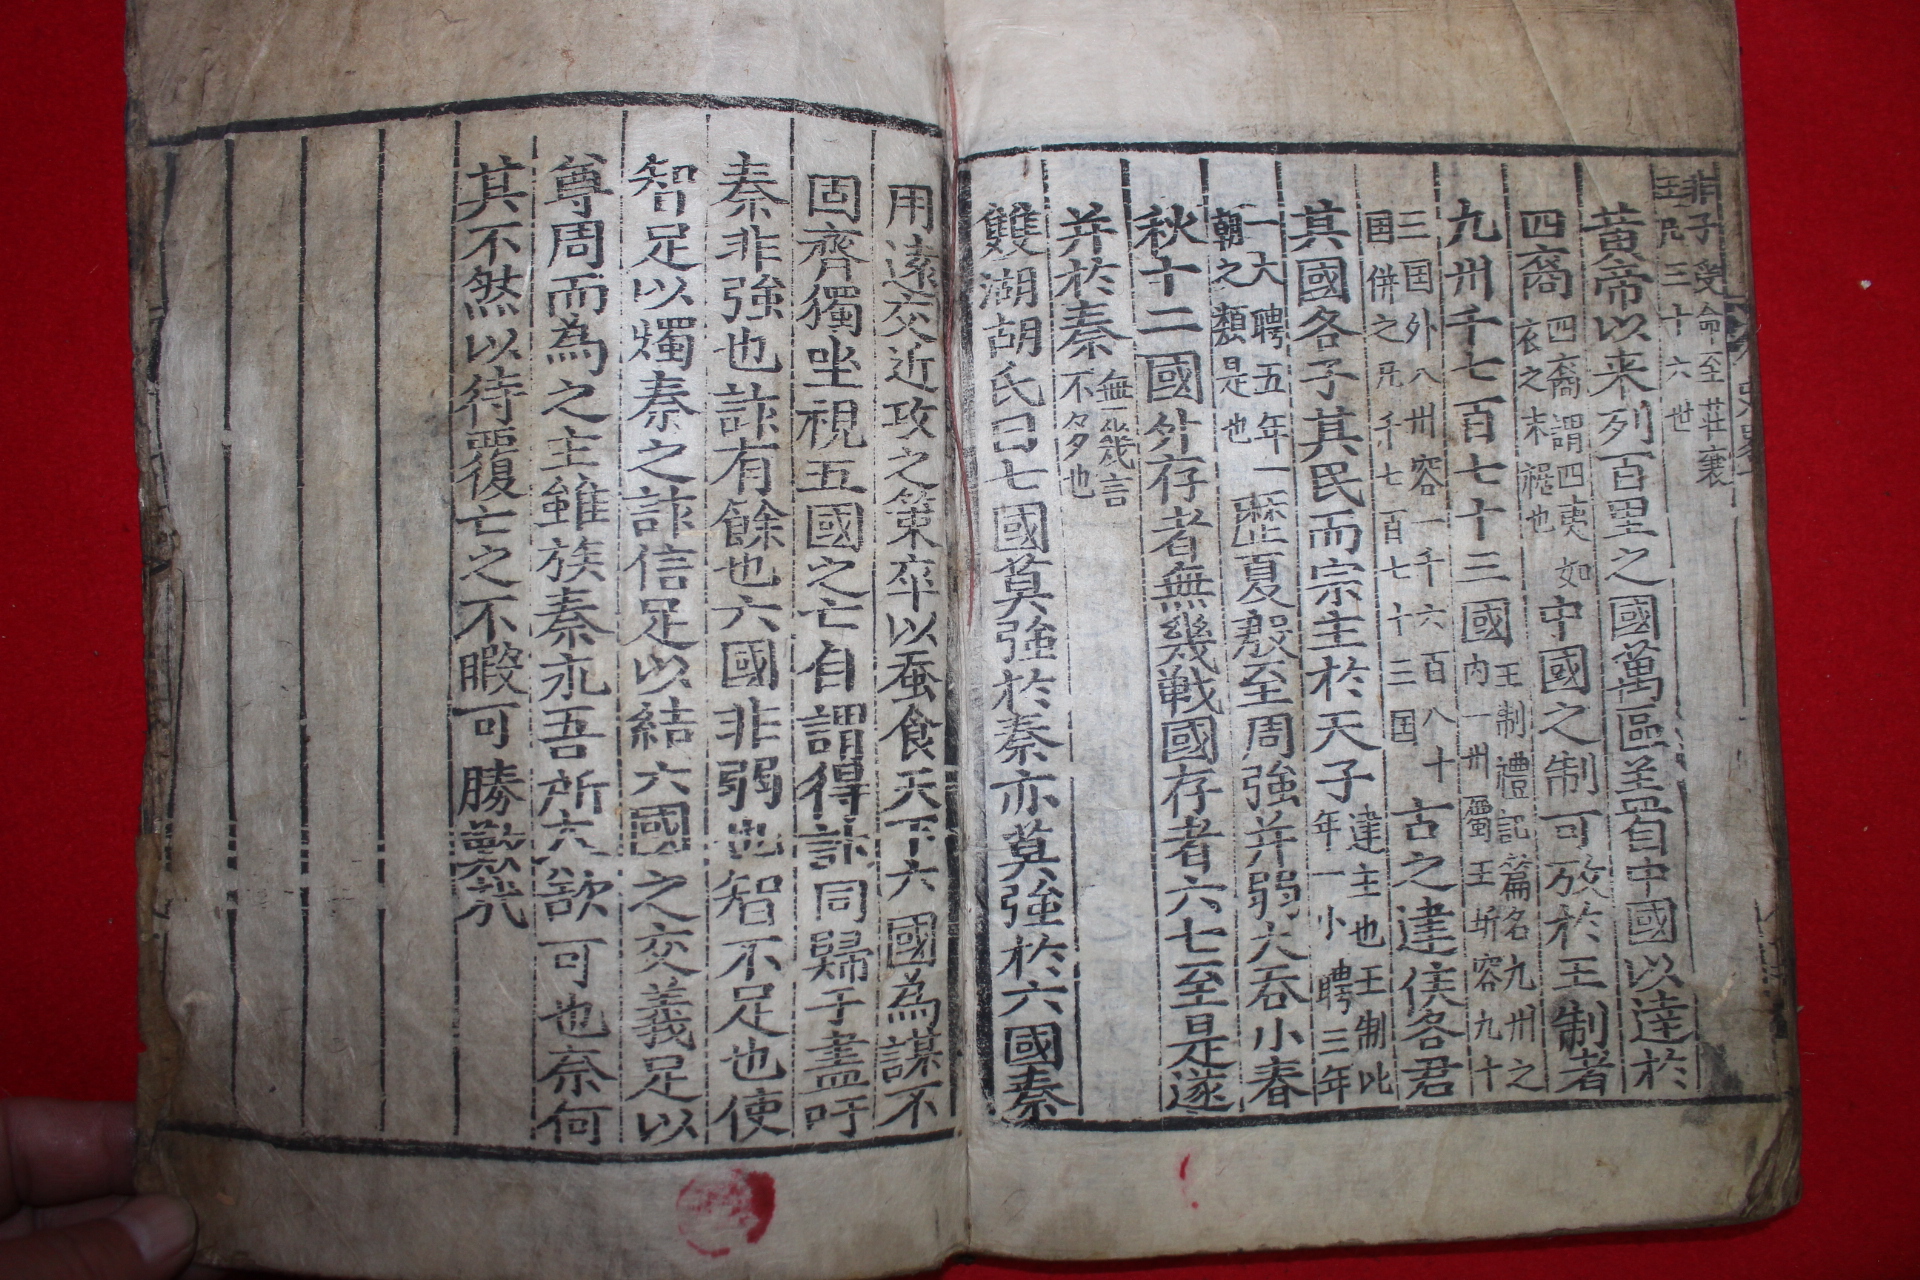 非子受命至莊襄
王凡三十六世
黃帝以来列百里之國萬區並自中國以達於
四裔四裔謂四夷如衣之末裾也中國之制可攷於王制者
九州千七百七十三國王制禮記篇名九州之內一州屬王圻容九十
三国外八州容一千六百八十国併之凡千七百七十三国古之建侯各君
其國各子其民而宗主於天子建主也王制比年一小聘三年
一大聘五年一朝之類是也歷夏殷至周強并弱大吞小春
秋十二國外存者無幾戦國存者六七至是遂
并於秦無幾言不多也
雙湖胡氏曰七國莫強於秦亦莫強於六國秦
用遠交近攻之策卒以蚕食天下六國為謀不
固齊獨坐視五國之亡自謂得計同歸于盡吁
秦非強也詐有餘也六國非弱也智不足也使
智足以燭秦之詐信足以結六國之交義足以
尊周而為之主雖族秦亦吾所六欲可也奈何
其不然以待覆亡之不暇可勝歎哉